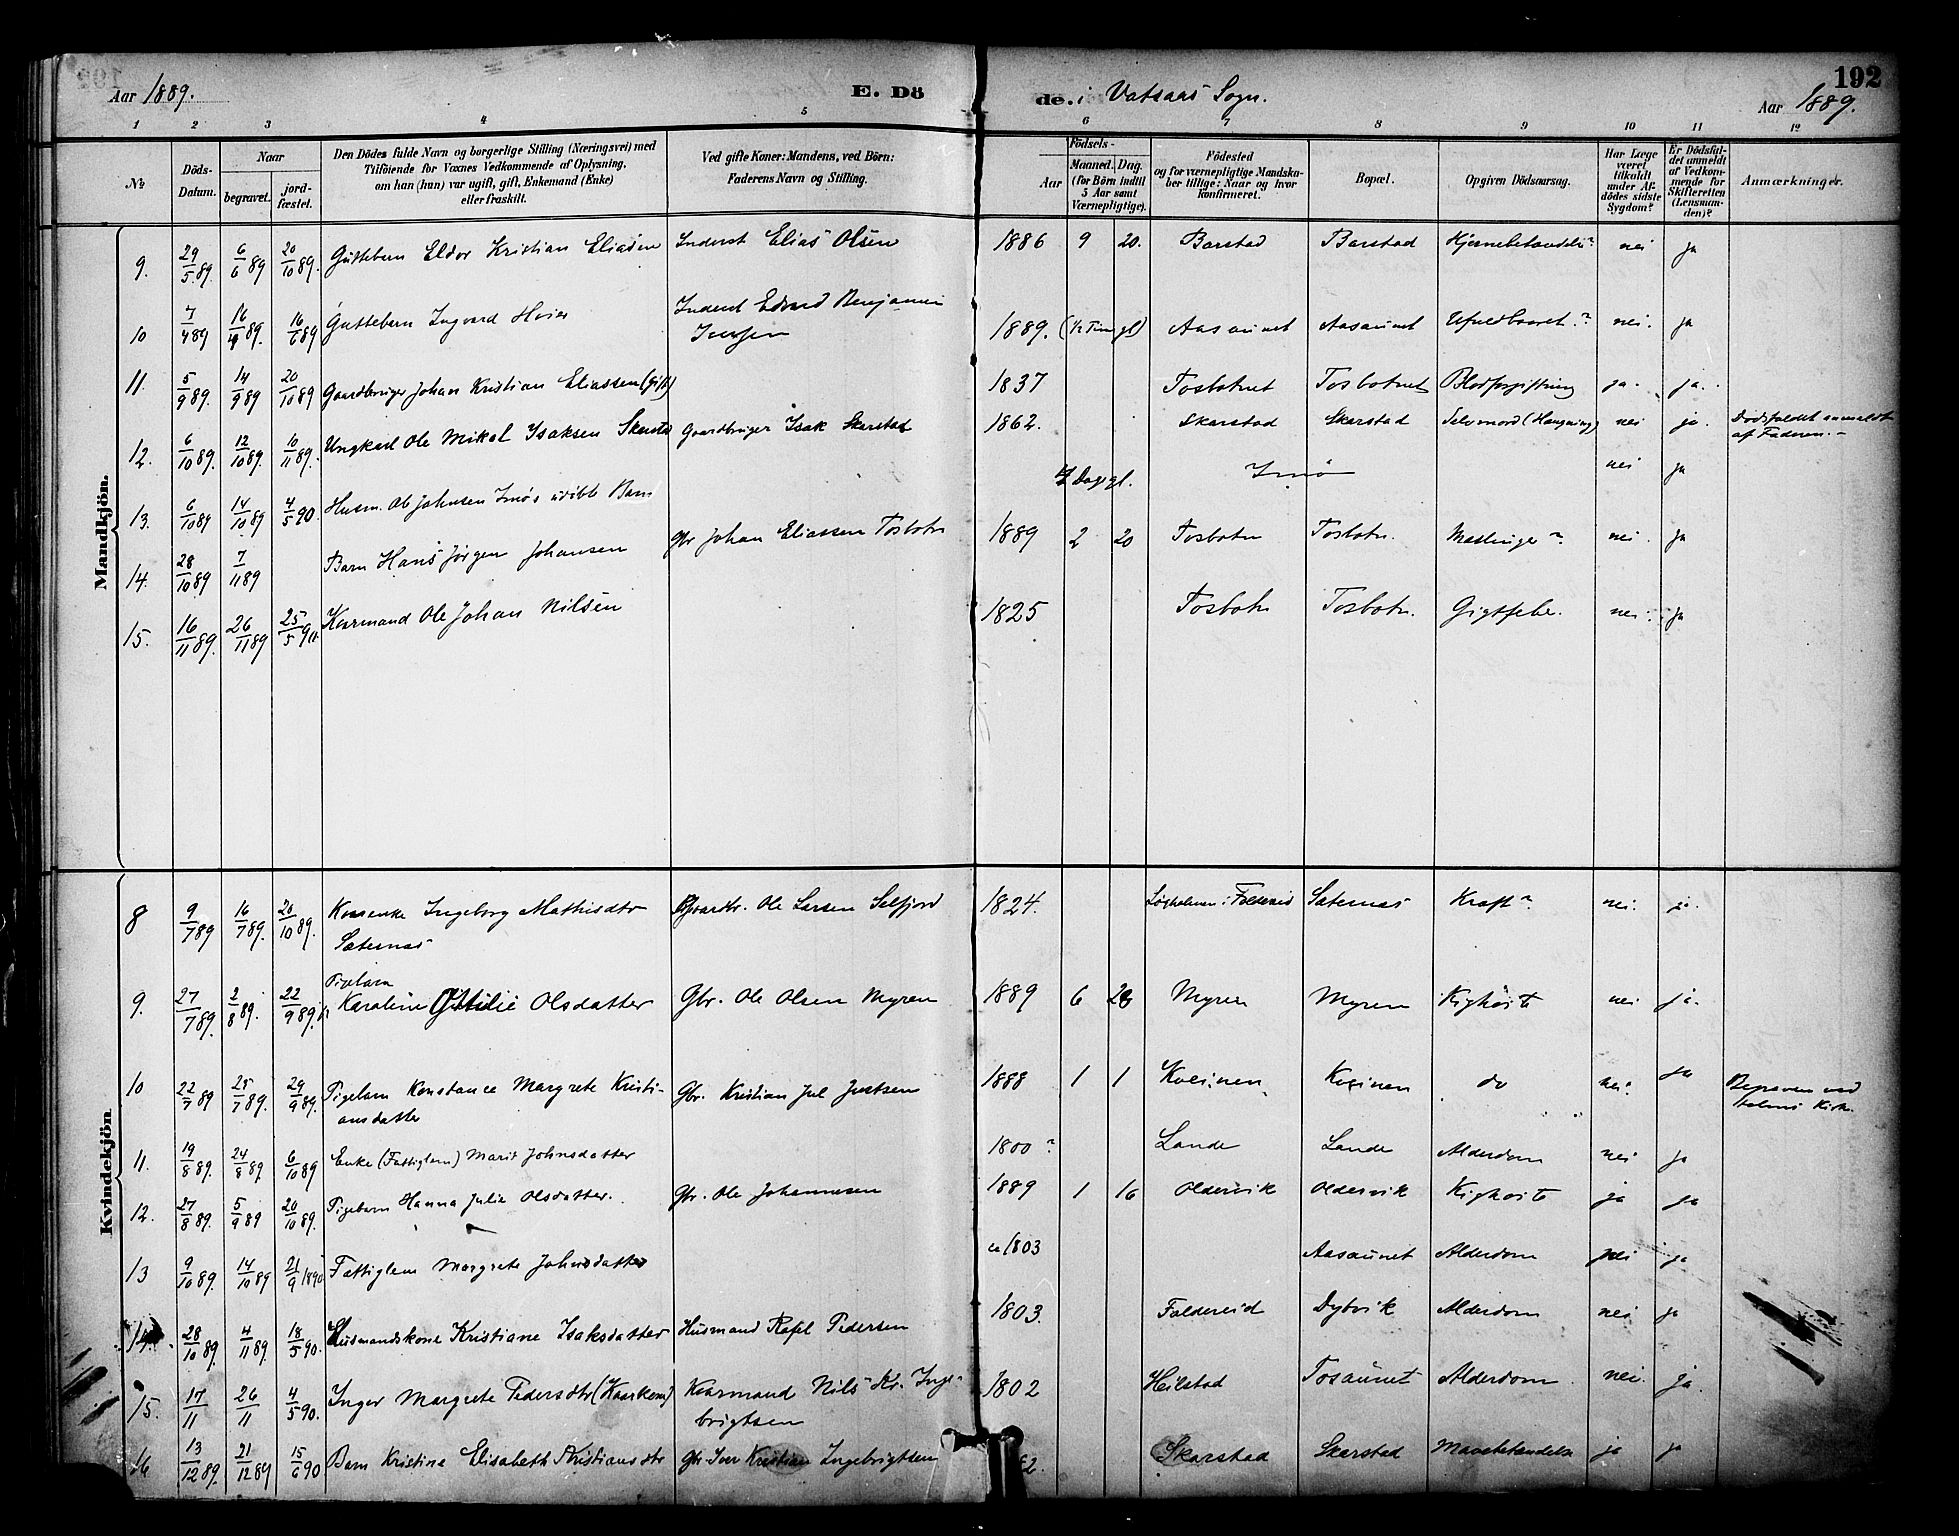 192
Aar 1889.
E. Dö de. i Vatsaas Sogn.
Aar 1889.
1 2 3 4 5 6 7 8 9 10 11 12
No
Döds-Datum.
Naar
begravet.
jord-fæstet.
Den Dödes fulde Navn og borgerlige Stilling (Næringsvei) med
Tilföiende for Voxnes Vedkommende af Oplysning,
om han (hun) var ugift, gift, Enkemand (Enke)
eller fraskilt.
Ved gifte Koner: Mandens, ved Börn:
Faderens Navn og Stilling.
Födsels-
Aar
Maaned. Dag.
(for Börn indtil
5 Aar samt
Værnepligtige).
Födested
og for værnepligtige Mandska-
ber tillige: Naar og hvor
konfirmeret.
Bopæl.
Opgiven Dödsaarsag.
Har Læge
været
tilkaldt
under Af-
dödes sidste
Sygdom?
Er Dödsfal-
det anmeldt
af Vedkom-
mende for
Skifteretten
(Lensman-
den)?
Anmærkninger.
Mandkjön.
9. 29/5 89. 6/6 89 20/10 89. Guttebarn Eldor Kristian Eliasen Inderst Elias Olsen 1886 9 20. Barstad Barstad Hjernebetændelse? nei ja
10 7/4 89 16/4 89. 16/6 89 Guttebarn Ingvard Inderst Edvard Benjamin
1889. Aasaunet Aasaunet nei. ja
11. 5/9 89. 14/9 89 20/10 89 Gaardbruger Johan Kristian Eliassen (Gift) 1837 Tosbotnet Tosbotnet Blodforgiftning ja. ja.
12. 6/10 89. 12/10 89. 10/11 89. Ungkarl Ole Mikal Isaksen Skarstad Gaardbruger Isak Skarstad 1862. Skarstad Skarstad Selvmord (Hængning) nei ja. Dödsfaldet anmeldt
af Faderen.-
13. 6/10 89 14/10 89 4/5 90. Husm. Ole Johnsen Imøs udöbte Barn Dage gl. Imø nei ja
14. 28/10 89 7/11 89 Barn Hans Jørgen Johansen Gbr Johan Eliassen Tosbotn 1889 2 20 Tosbotn Tosbotn. Meslinger? nei. ja
15. 16/11 89. 26/11 89 25/5 90 Kaarmand Ole Johan Nilsen 1825 Tosbotn Tosbotn. Gigtfeber. nei. ja
Kvindekjön
8 9/7 89 16/7 89. 20/10 89. Ingeborg Mathisdtr Ole Larsen Selfjord 1824. Foldereid Sæternas Kræft? nei. ja.
Sæternas
9. 27/7 89. 2/8 89. 22/9 89. Pigebarn
Karoline Ottilie Olsdatter Gbr. Ole Olsen Myren 1889 6 Myren Myren Kighoste nei ja.
10 22/7 89 28/7 89. 29/9 89. Pigebarn Konstance Margrete Kristi- Gbr. Kristian Jul Justsen 1888 1 1 Kolinen Kolinen do nei. ja Begraven ved
ansdatter Kirke.
11. 19/8 89. 24/8 89 6/10 89 Enke (Fattiglem) Marit Johnsdatter 1800? Lande Lande Alderdom nei ja
12. 27/8 89. 5/9 89 20/10 89. Pigebarn Hanna Julie Olsdatter. Gbr. Ole Johannesen 1889 1 16 Oldervik Oldervik Kighoste ja ja
13 9/10 89. 14/10 89 21/9 1890 Fattiglem Margrete Johnsdatter ca 1803 Aasaunet Alderdom nei ja
14. 28/10 89. 4/11 89. 18/5 90. Husmandskone Kristiane Isaksdatter Husmand Rafel Pedersen 1803. Foldereid Dybvik Alderdom nei ja
15. 17/11 26/11 4/5 90. Inger Margrete Pedersdtr (Kaarkone) Kaarmand Nils Kr. Inge- 1802 Heilstad Tosaunet Alderdom nei. ja.
brigtsen
16 13/12 89. 21/12 89 15/6 90 Barn Kristine Elisabeth Kristiansdtr Gbr Iver Kristian Ingebrigtsen Skarstad Skarstad Mavebetændelse ja ja